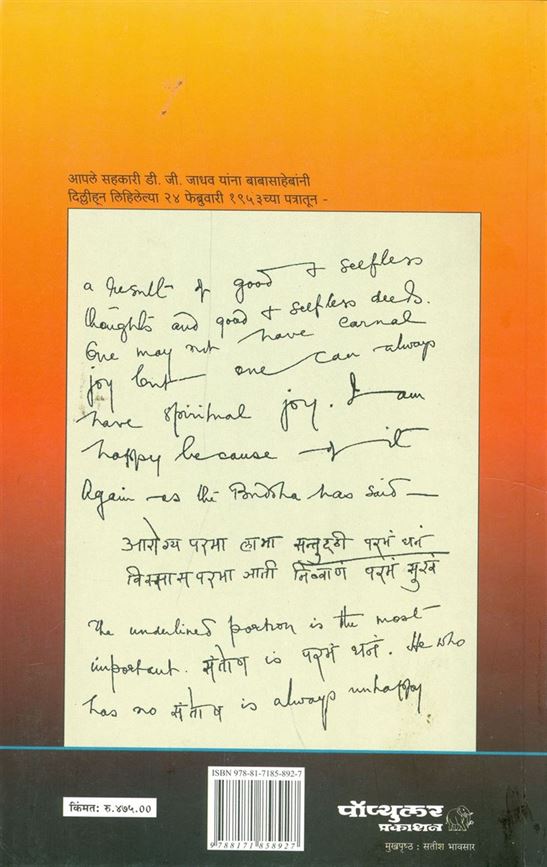 आपले सहकारी डी. जी. जाधव यांना बाबासाहेबांनी
दिल्लीहून लिहिलेल्या २४ फेब्रुवारी १९५३च्या पत्रातून -
a result of good & selfless
thoughts and good & selfless deeds.
One may not have carnal
joy but one can always
have spiritual joy. I am
happy because of it
Again as the Buddha has said —
आरोग्य परमा लाभा सन्तुठ्ठी परमं धनं
विस्सास परमा ञाती निब्बाणं परमं सुखं
The underlined portion is the most
important. संतोष is परमं धनं. He who
has no संतोष is always unhappy
किंमत: रु.४७५.००
ISBN 978-81-7185-892-7
9788171858927
पॉप्युलर
प्रकाशन
मुखपृष्ठ : सतीश भावसार